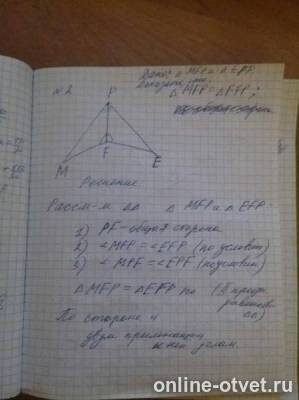 Дано: △ MFP и △ EFP.
Доказать, что
△ MFP = △ EFP.
№2
P
F
M
E
Решение
Рассм-м △△ △ MFP и △ EFP.
1) PF - общая сторона
2) ∠MFP = ∠EFP (по условию)
3) ∠ MPF = ∠EPF (по условию)
△ MFP = △EFP по
По стороне и
двум прилежащим
к ней углам.
online-otvet.ru